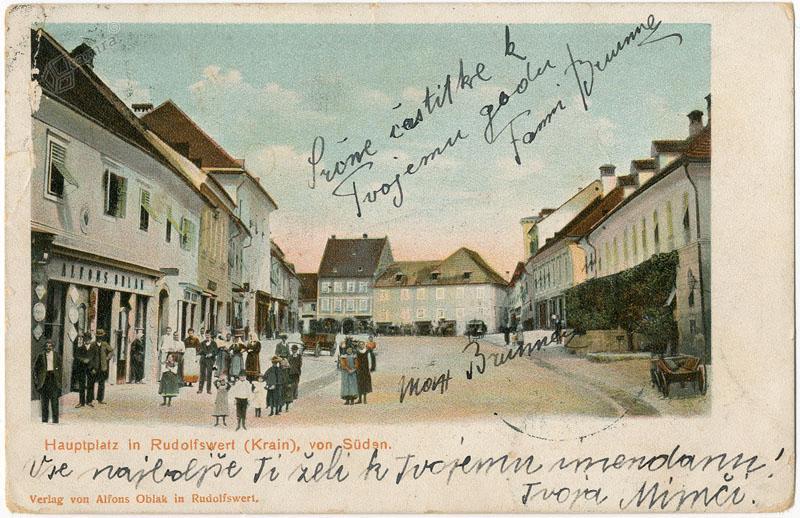 Srčne častitke k
Tvojemu godu
Fanni Brunner
ALFONS OBLAK
Max Brunner
Hauptplatz in Rudolfswert (Krain), von Süden.
Vse najboljše Ti želi k Tvojemu imendanu!
Tvoja Mimči.
Verlag von Alfons Oblak in Rudolfswert.